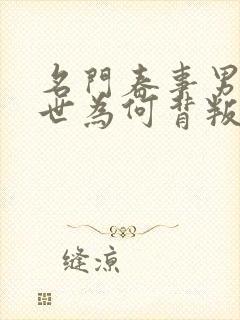 名門春事男
世為何背叛
缝凉